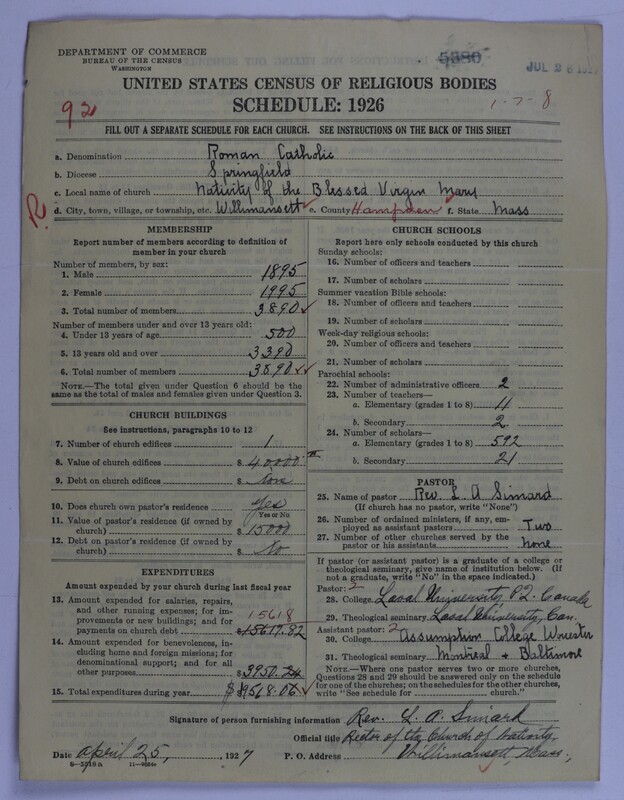 DEPARTMENT OF COMMERCE
BUREAU OF THE CENSUS
WASHINGTON
5380
JUL 26 1927
UNITED STATES CENSUS OF RELIGIOUS BODIES
SCHEDULE: 1926
92
1-7-8
FILL OUT A SEPARATE SCHEDULE FOR EACH CHURCH. SEE INSTRUCTIONS ON THE BACK OF THIS SHEET
a. Denomination Roman Catholic
b. Diocese Springfield
c. Local name of church Nativity of the Blessed Virgin Mary
R
d. City, town, village, or township, etc. Willimansett e. County Hampden f. State Mass
MEMBERSHIP
Report number of members according to definition of
member in your church
Number of members, by sex:
1. Male 1895
2. Female 1995
3. Total number of members 3890
Number of members under and over 13 years old:
4. Under 13 years of age 500
5. 13 years old and over 3390
6. Total number of members 3890
NOTE.—The total given under Question 6 should be
same as the total of males and females given under Question 3.
CHURCH BUILDINGS
See instructions, paragraphs 10 to 12
7. Number of church edifices 1
8. Value of church edifices $ 40000
9. Debt on church edifices $ None
10. Does church own pastor's residence Yes
Yes or No
11. Value of pastor's residence (if owned by
church) $ 15000
12. Debt on pastor's residence (if owned by
church) $ No
EXPENDITURES
Amount expended by your church during last fiscal year
13. Amount expended for salaries, repairs,
and other running expenses; for im-
provements or new buildings; and for 15618
payments on church debt $ 15617.82
14. Amount expended for benevolences,
including home and foreign missions; for
denominational support; and for all
other purposes $ 3950.24
15. Total expenditures during year $ 19568.06
CHURCH SCHOOLS
Report here only schools conducted by this church
Sunday schools:
16. Number of officers and teachers
17. Number of scholars
Summer vacation Bible schools:
18. Number of officers and teachers
19. Number of scholars
Week-day religious schools:
20. Number of officers and teachers
21. Number of scholars
Parochial schools:
22. Number of administrative officers 2
23. Number of teachers—
a. Elementary (grades 1 to 8) 11
b. Secondary 2
24. Number of scholars—
a. Elementary (grades 1 to 8) 592
b. Secondary 21
PASTOR
25. Name of pastor Rev. L. A Simard
(If church has no pastor, write "None")
26. Number of ordained ministers, if any, em-
ployed as assistant pastors Two
27. Number of other churches served by the
pastor or his assistants None
If pastor (or assistant pastor) is a graduate of a college or
theological seminary, give name of institution below. (If
not a graduate, write "No" in the space indicated.)
Pastor: 2
28. College Laval University P2. Canada
29. Theological seminary Laval University, Can.
Assistant pastor: 2
30. College Assumption College Worcester
31. Theological seminary Montreal + Baltimore
NOTE.—Where one pastor serves two or more churches,
Questions 28 and 29 should be answered only on the schedule
for one of the churches; on the schedules for the other churches,
write "See schedule for church."
Signature of person furnishing information Rev. L. A. Simard
Official title Rector of the Church of Nativity
Date April 25, 1927 P. O. Address Willimansett Mass.,
8-5318a 11-9084